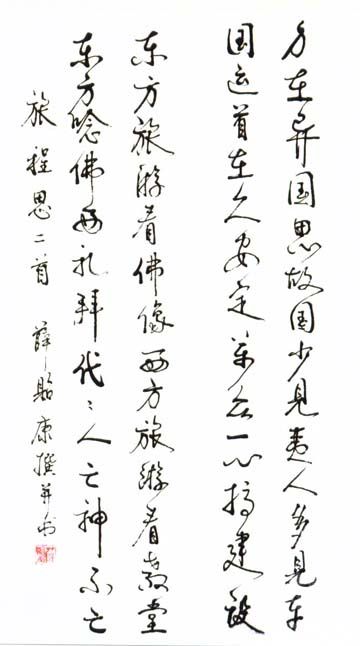 身在异国思故国少见人多见车
国运首在久安定万众一心搞建设
东方旅游看佛像西方旅游看教堂
东方唸佛西礼拜代〻人亡神不亡
旅程思二首 薛贻康撰并书